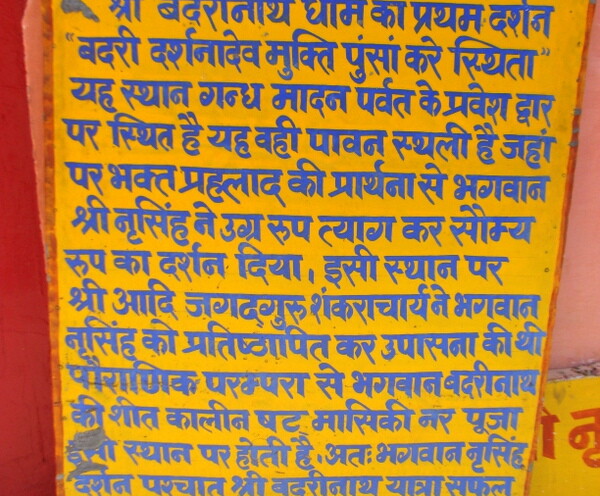 श्री बदरीनाथ धाम का प्रथम दर्शन
"बदरी दर्शनादेव मुक्ति पुंसां करे स्थिता"
यह स्थान गन्ध मादन पर्वत के प्रवेश द्वार
पर स्थित है यह वही पावन स्थली है जहां
पर भक्त प्रहलाद की प्रार्थना से भगवान
श्री नृसिंह ने उग्र रुप त्याग कर सौम्य
रुप का दर्शन दिया, इसी स्थान पर
श्री आदि जगद्गुरु शंकराचार्य ने भगवान
नृसिंह को प्रतिष्ठापित कर उपासना की थी
पौराणिक परम्परा से भगवान बदरीनाथ
की शीत कालीन षट् मासिकी नर पूजा
इसी स्थान पर होती है, अतः भगवान नृसिंह
दर्शन पश्चात श्री बदरीनाथ यात्रा सफल